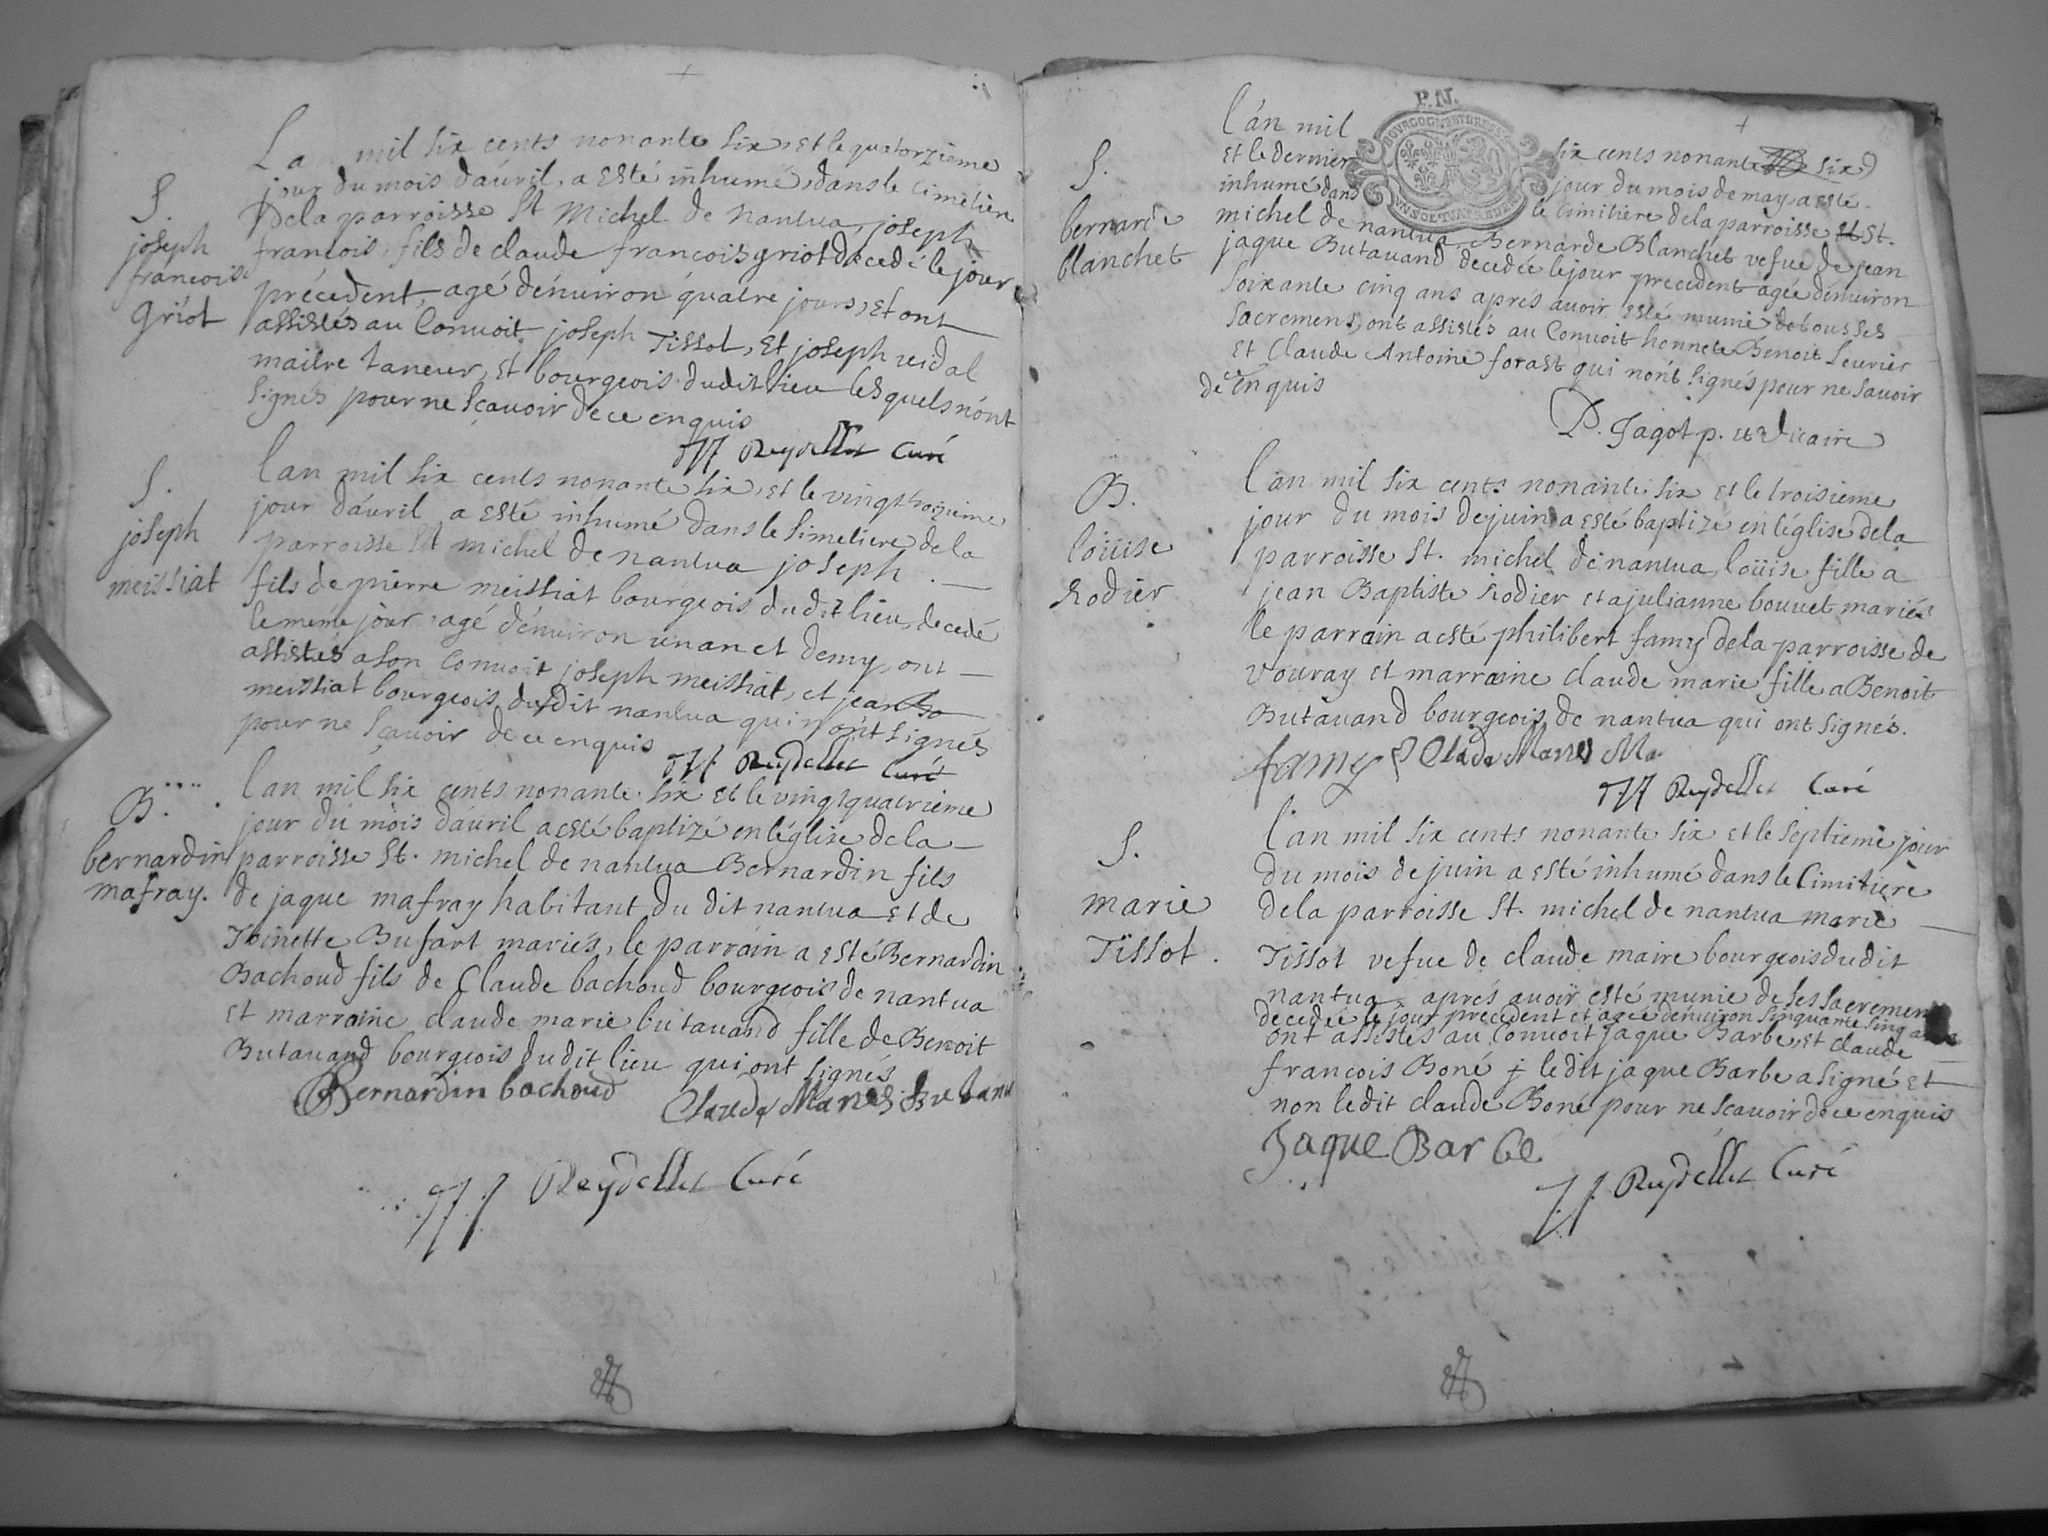 Lan mil six cents nonante six, et le quatorzieme
jour du mois d'auril, a esté inhumé dans le Cimetiere
S.
joseph
francois
Griot
De la parroisse St Michel de Nantua, joseph
francois, fils de claude francois griot decedé le jour
précedent, agé dénuiron quatre jours, et ont
assistés au Conuoit joseph Tissot, et joseph uidal
maitre taneur, et bourgeois dudit lieu lesquels n'ont
signés pour ne scauoir de ce enquis
Reydellet Curé
S.
joseph
meissiat
lan mil six cents nonante six, et le vingttroizieme
jour d'auril a esté inhumé dans le simetiere de la
parroisse St michel de nantua joseph
fils de pierre meissiat bourgeois dudit lieu, decedé
le méme jour agé dénuiron un an et demy, ont
assistés a son Conuoit joseph meissiat, et jean Bo
meissiat bourgeois dudit nantua qui n'ont signés
pour ne scauoir de ce enquis
Reydellet Curé
B.
bernardin
mafray.
lan mil six cents nonante six et le vingtquatrieme
jour du mois d'auril a esté baptizé en léglise de la
parroisse St. michel de nantua Bernardin fils
de jaque mafray habitant du dit nantua et de
Thoinette Bufart mariés, le parrain a esté Bernardin
Bachoud fils de Claude bachoud bourgeois de nantua
et marraine claude marie butauand fille de Benoit
Butauand bourgeois du dit lieu qui ont signés
Bernardin bachoud
Claude Marie
Reydellet Curé
P.N.
S.
bernarde
blanchet
l'an mil six cents nonante six
et le dernier jour du mois de may a esté
inhumé dans le Cimitiere de la parroisse St.
michel de nantua Bernarde Blanchet vefue de jean
jaque Butauand decedée le jour precedent agée dénuiron
soixante cinq ans aprés auoir esté munie de tous ses
sacremens, ont assistés au Conuoit honnete Benoit leurier
et Claude Antoine forast qui n'ont signés pour ne sauoir
de ce enquis
P. Jagot p. et vicaire
B.
loüise
Rodier
l'an mil six cents nonante six et le troisieme
jour du mois de juin a esté baptizé en léglise de la
parroisse St. michel de nantua, loüise fille a
jean Baptiste Rodier et a julianne bouuet mariés
le parrain a esté philibert famy de la parroisse de
vouray et marraine claude marie fille a Benoit
Butauand bourgeois de nantua qui ont signés.
famy
Reydellet Curé
S.
marie
Tissot.
l'an mil six cents nonante six et le septieme jour
du mois de juin a esté inhumé dans le Cimitiere
de la parroisse St. michel de nantua marie
Tissot vefue de claude maire bourgeois dudit
nantua, aprés auoir esté munie de ses sacremens
decedée le jour precedent et agée denuiron sinquante sing ans
ont assistés au Conuoit jaque Barbe, et claude
francois Boné † le dit jaque Barbe a signé et
non le dit claude Boné pour ne scauoir de ce enquis
Jaque Barbe
Reydellet Curé